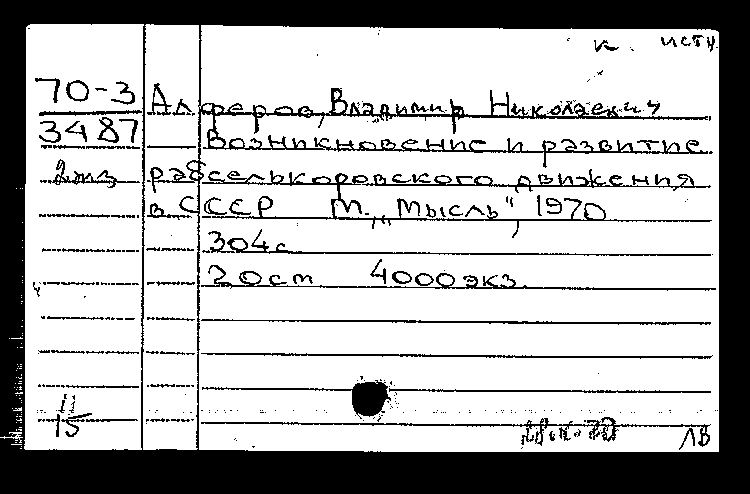 к. ист
70-3 Алферов, Владимир Николаевич
3487 Возникновение и развитие
2 экз рабселькоровского движения
в СССР М., „Мысль", 1970
304 с
20 см 4000 экз.
11
15
ЛВ